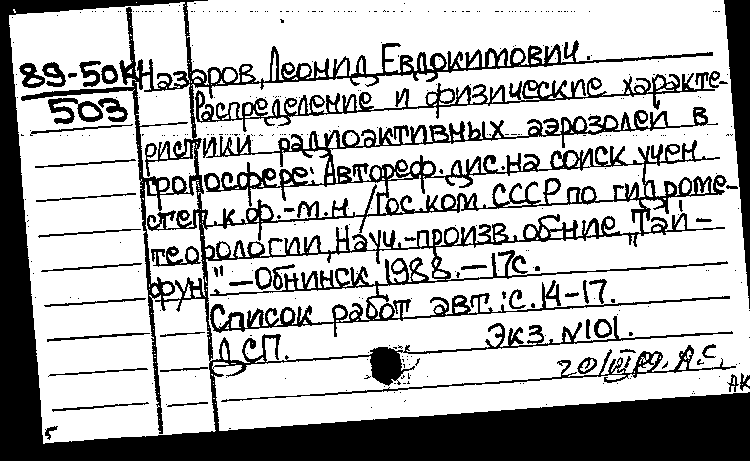 89-50К Назаров, Леонид Евдокимович.
503 Распределение и физические характе-
ристики радиоактивных аэрозолей в
тропосфере: Автореф. дис. на соиск. учен.
степ. к. ф.-м. н. / Гос. ком. СССР по гидроме-
теорологии, Науч.-произв. об-ние "Тай-
фун". - Обнинск, 1988. - 17с.
Список работ авт.: с. 14-17.
ДСП. Экз. N101.
20/III 89. А.С.
АК